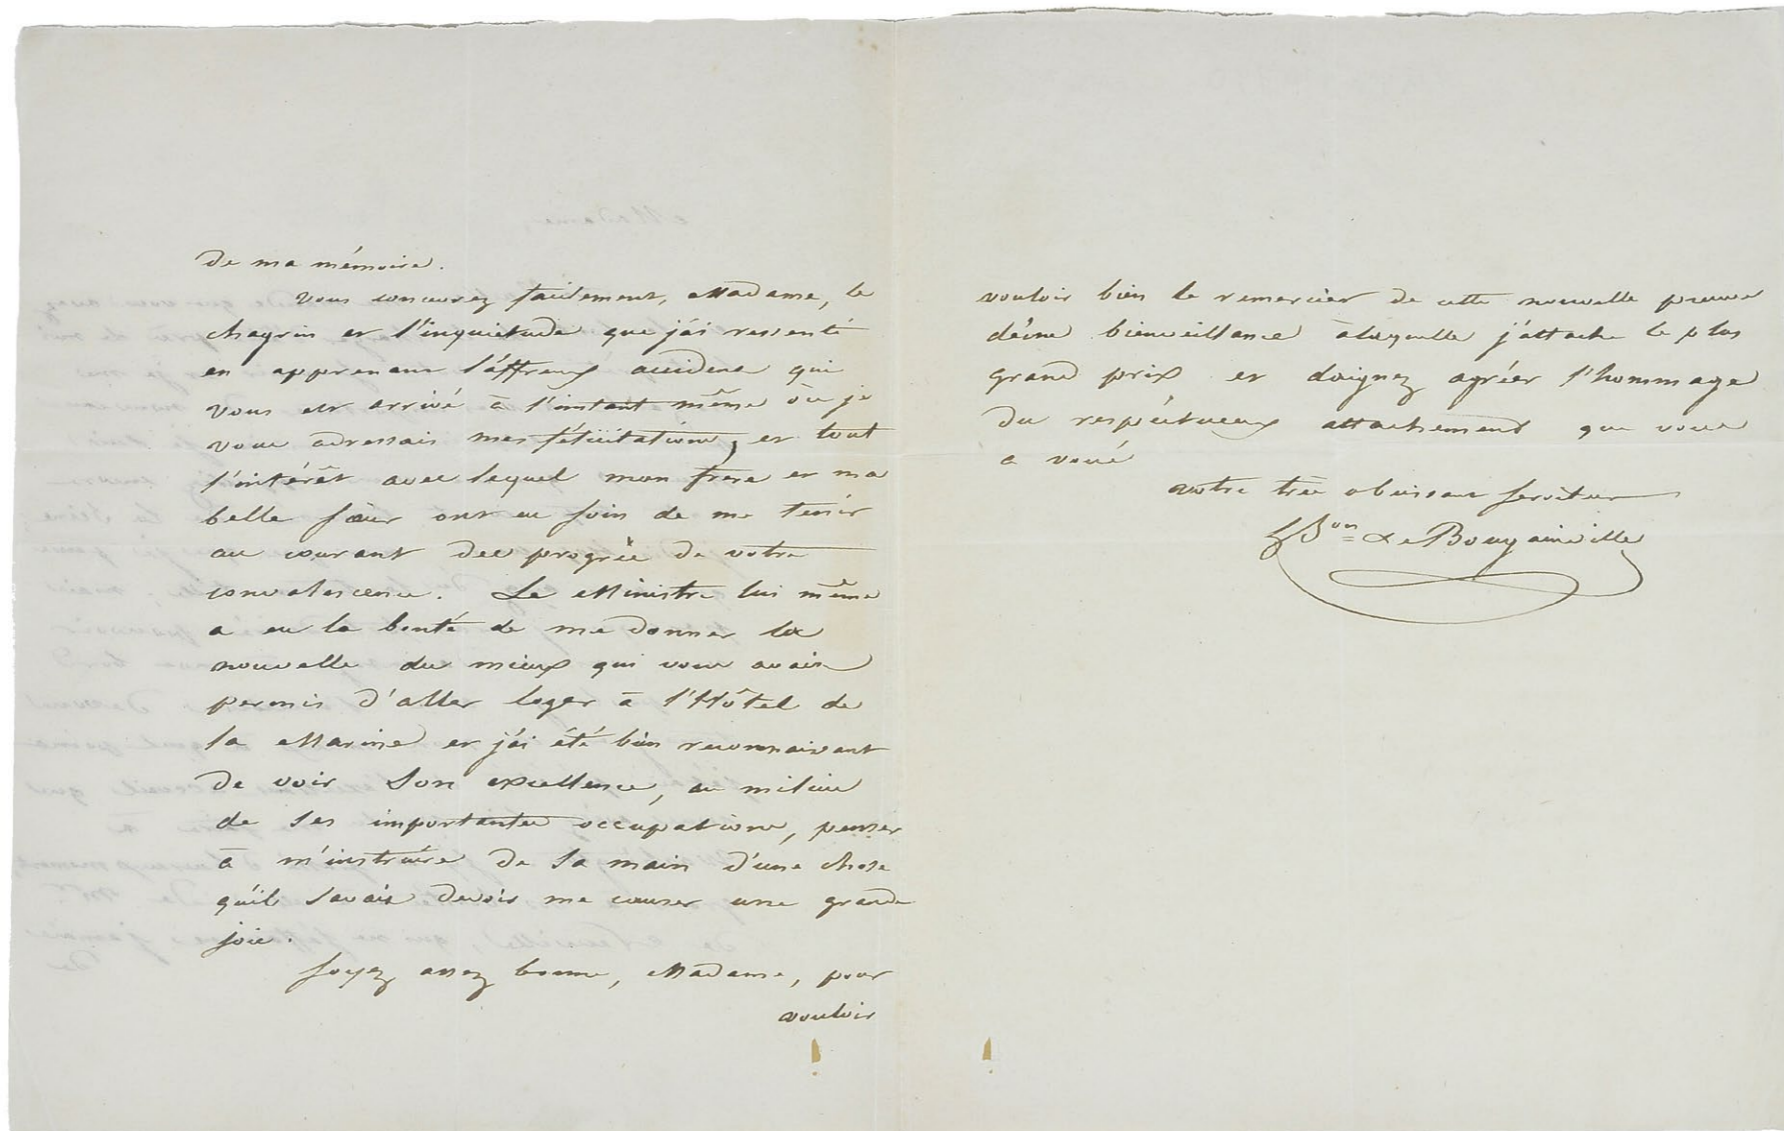 de ma mémoire.
Vous concevez facilement, Madame, le
chagrin et l'inquiétude que j'ai ressenti
en apprenant l'affreux accident qui
vous est arrivé à l'instant même où je
vous adressais mes félicitations, et tout
l'intérêt avec lequel mon frere et ma
belle sœur ont eu soin de me tenir
au courant des progrès de votre
convalescence. Le Ministre lui même
a eu la bonté de me donner la
nouvelle du mieux qui vous avait
permis d'aller loger à l'Hôtel de
la Marine et j'ai été bien reconnaissant
de voir Son excellence, au milieu
de ses importantes occupations, penser
à m'instruire de sa main d'une chose
qu'il savait devoir me causer une grande
joie.
Soyez assez bonne, Madame, pour
vouloir
vouloir bien le remercier de cette nouvelle preuve
d'une bienveillance à laquelle j'attache le plus
grand prix et daignez agréer l'hommage
du respectueux attachement que vous
a voué
votre très obéissant serviteur
Bon de Bougainville